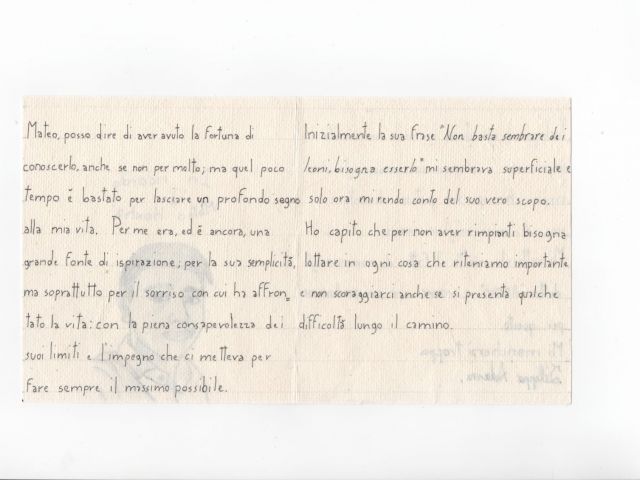 Mateo, posso dire di aver avuto la fortuna di
conoscerlo, anche se non per molto; ma quel poco
tempo è bastato per lasciare un profondo segno
alla mia vita. Per me era, ed è ancora, una
grande fonte di ispirazione; per la sua semplicità,
ma soprattutto per il sorriso con cui ha affron=
tato la vita: con la piena consapevolezza dei
suoi limiti e l'impegno che ci metteva per
fare sempre il massimo possibile.
Inizialmente la sua frase "Non basta sembrare dei
leoni, bisogna esserlo" mi sembrava superficiale e
solo ora mi rendo conto del suo vero scopo.
Ho capito che per non aver rimpianti bisogna
lottare in ogni cosa che riteniamo importante
e non scoraggiarci anche se si presenta qualche
difficoltà lungo il camino.